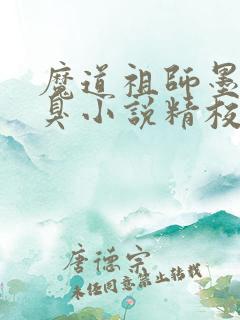 魔道祖师墨
臭小说精校
唐德宗
未经同意禁止转载